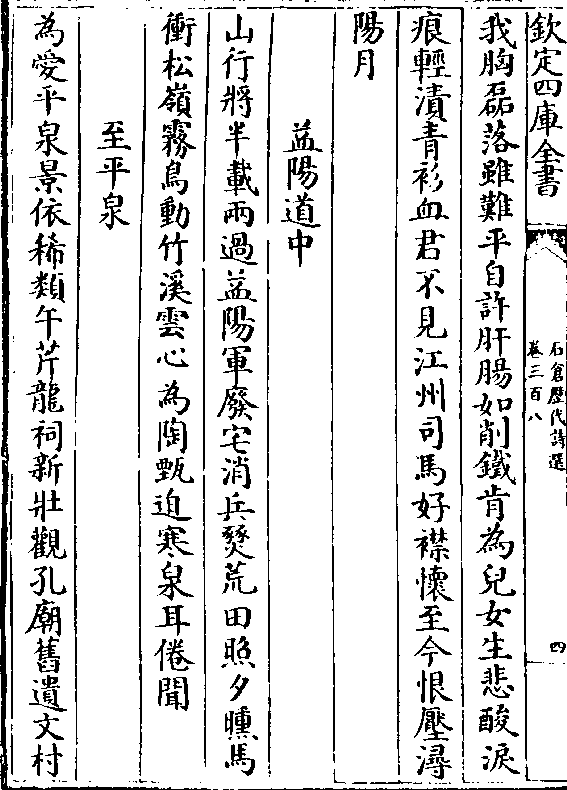 欽定四庫全書
石倉歷代詩選
卷三百八
四
我胸磊落雖難平自許肝腸如削鐵肯為兒女生悲酸淚
痕輕漬青衫血君不見江州司馬好襟懷至今恨壓潯
陽月
益陽道中
山行將半載兩過益陽軍廢宅消兵燹荒田照夕曛馬
衝松嶺霧鳥動竹溪雲心為陶甄迫寒泉耳倦聞
至平泉
為愛平泉景依稀類午芹龍祠新壯觀孔廟舊遺文村